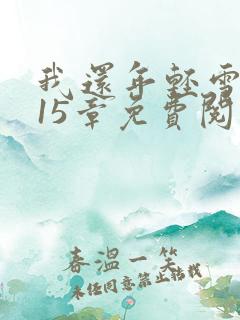 我還年輕雪
15章免費閱
春溫一笑
未经同意禁止转载